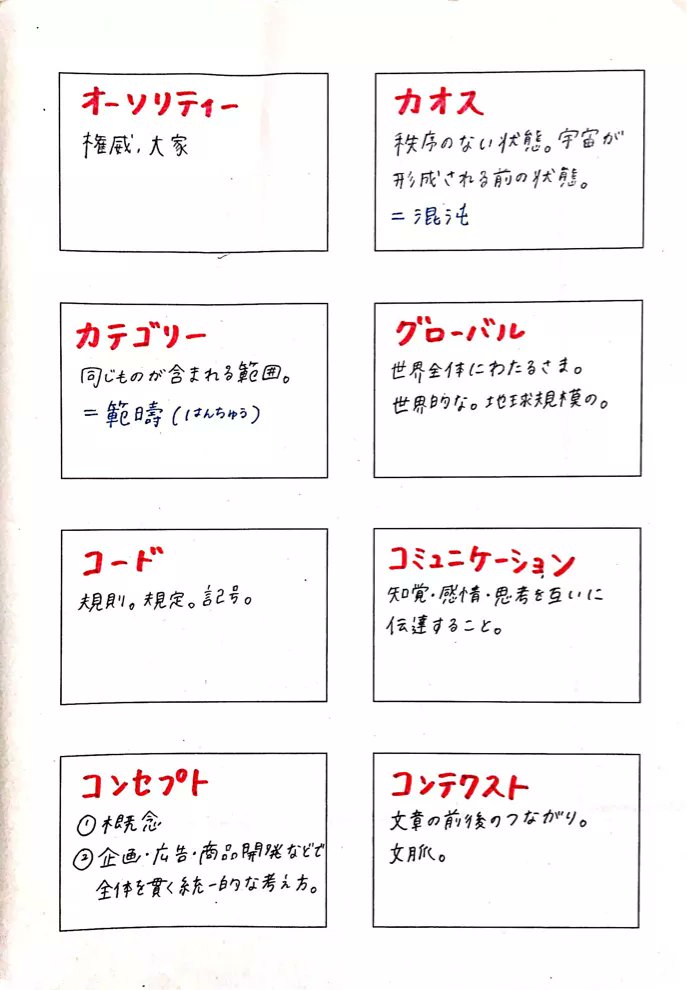 オーソリティー
権威,大家
カオス
秩序のない状態。宇宙が
形成される前の状態。
=混沌
カテゴリー
同じものが含まれる範囲。
=範疇(はんちゅう)
グローバル
世界全体にわたるさま。
世界的な。地球規模の。
コード
規則。規定。記号。
コミュニケーション
知覚・感情・思考を互いに
伝達すること。
コンセプト
①概念
②企画・広告・商品開発などで
全体を貫く統一的な考え方。
コンテクスト
文章の前後のつながり。
文脈。